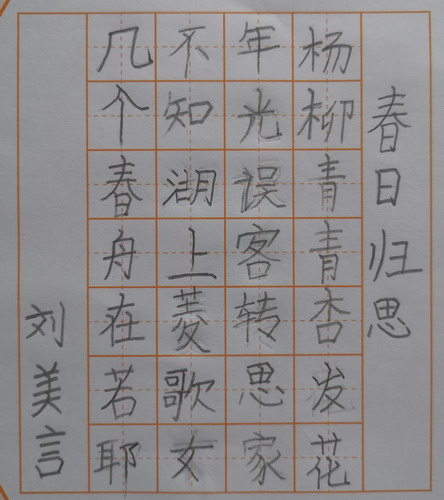 春日归思
杨柳青青杏发花
年光误客转思家
不知湖上菱歌女
几个春舟在若耶
刘美言